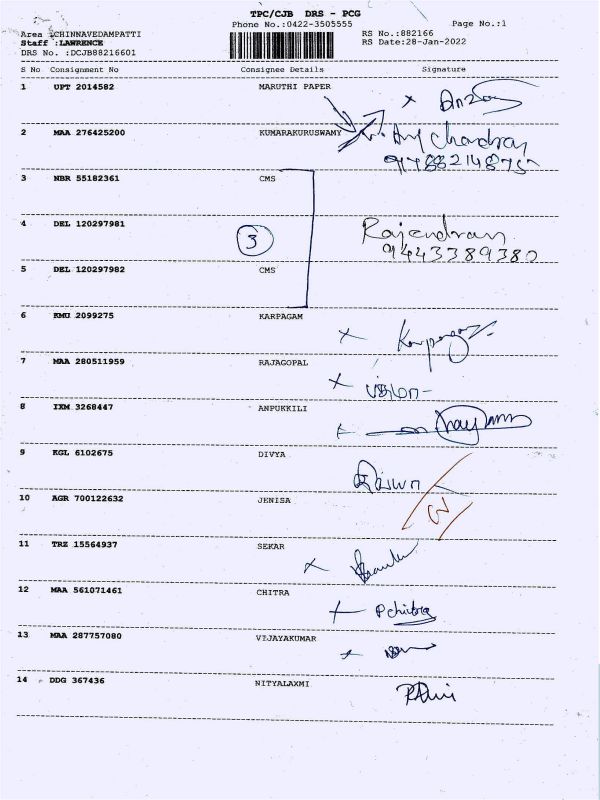 TPC/CJB DRS - PCG
Phone No.:0422-3505555
Page No.:1
Area :CHINNAVEDAMPATTI
RS No.:882166
Staff :LAWRENCE
RS Date:28-Jan-2022
DRS No. :DCJB88216601
S No Consignment No Consignee Details Signature
1 UPT 2014582 MARUTHI PAPER
2 MAA 276425200 KUMARAKURUSWAMY
Chandran
3 NBR 55182361 CMS
4 DEL 120297981
3
Rajendran
9443389380
5 DEL 120297982 CMS
6 KMU 2099275 KARPAGAM
7 MAA 280511959 RAJAGOPAL
8 IXM 3268447 ANPUKKILI
9 KGL 6102675 DIVYA
10 AGR 700122632 JENISA
11 TRZ 15564937 SEKAR
12 MAA 561071461 CHITRA
P chitra
13 MAA 287757080 VIJAYAKUMAR
14 DDG 367436 NITYALAXMI